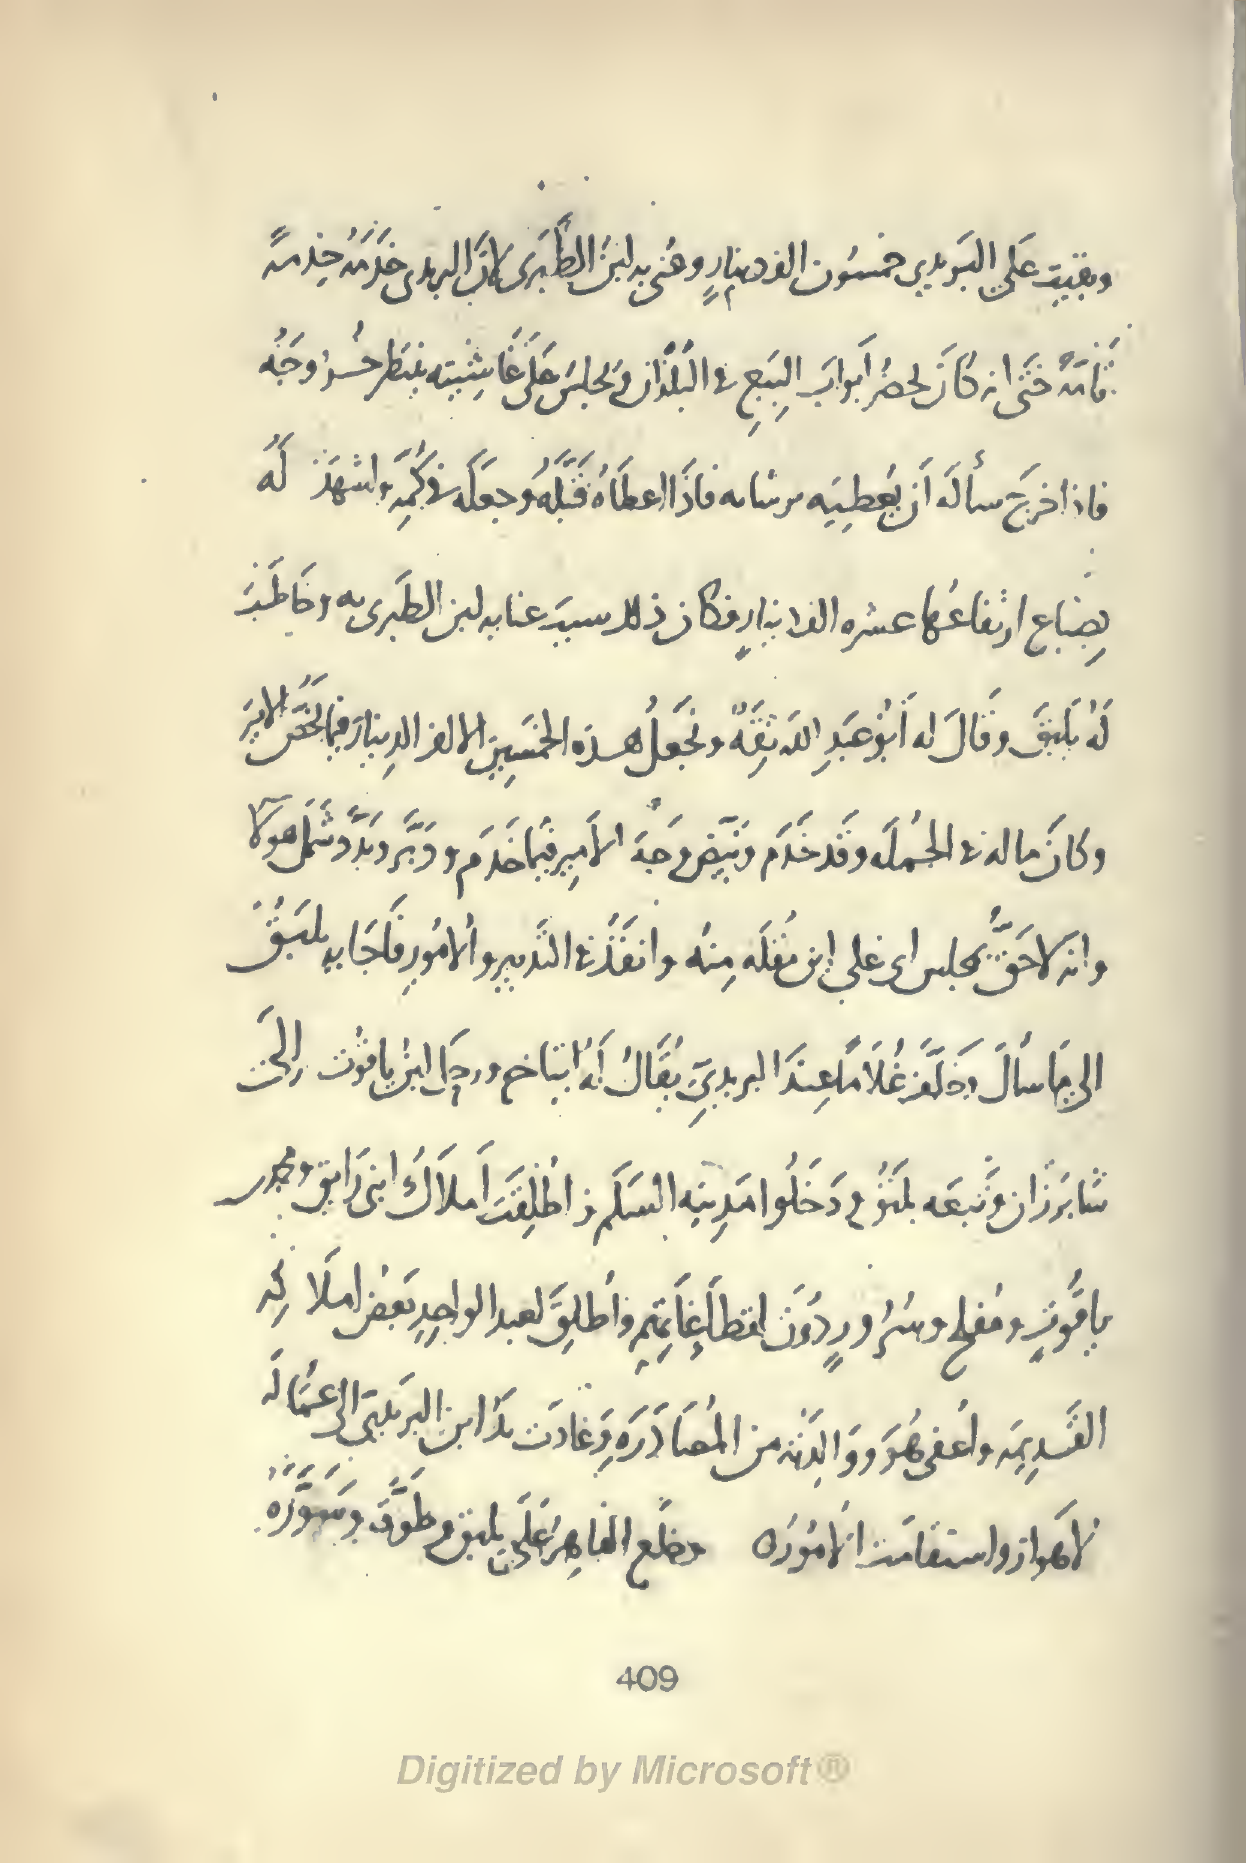 وبقيت على البريدي خمسون الف دينار وعُنى به ابن الطبرى لان البريدى خدمه خدمةً
تامّةً حتى انه كان يحضر ابواب البيع في البلدان ويجلس على غاشيته ينتظر خروجه
فاذا خرج سأله أن يعطيه فاذا اعطاه قبّله وجعله في كمّه واشهد له
بضياع ارتفاعها عشره الف دينار وكان ذلك سبب عنايه ابن الطبرى به وخاطب
له بليق وقال له أبو عبد الله ثقةٌ ونجعل هذه الخمسين الالف الدينار فيما يخصّ الامير
وكان ماله في الجمله وقد خدم وبيّض وجه الامير فيما خدم ودبّر وبدّد شمل هولا
وانه لاحقّ بمجلس ابى علي ابن مقله منه وانفذ في التدبير والامور فاجابه بليق
الى ما سأل وخلّف غلاماً عند البريديّ يقال له ايتاخ ورحل ابن ياقوت الى
شابرزان وتبعه بليق ودخلوا مدينه السلم واطلقت أملاك ابنى رايق ومحمد بن
ياقوتٍ ومفلح وسرور دون اقطاعاتهم واُطلق لعبد الواحد بعض املا كه
القديمه واُعفى هو ووالدته من المصادره وعادت يد ابن البريدي الى عماله
لاهواز واستقامت الامور ه وخلع القاهر على بليق وطوّقه وسوّره
409
Digitized by Microsoft®